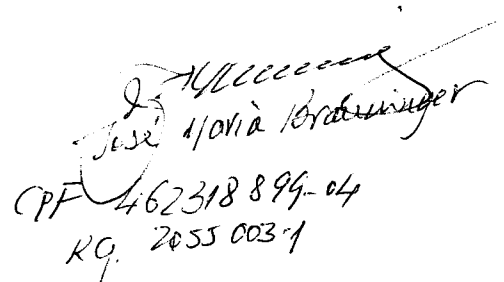 José Maria Bräuninger
CPF 462318899-04
RG. 2055003-1